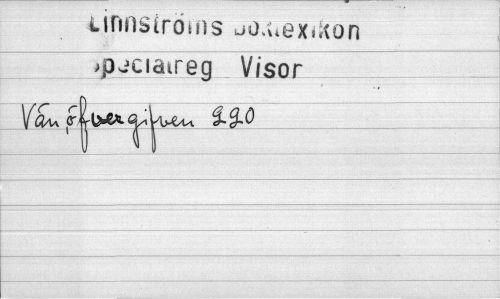 Linnströms Boklexikon
Specialreg Visor
Vän, öfvergifven 220